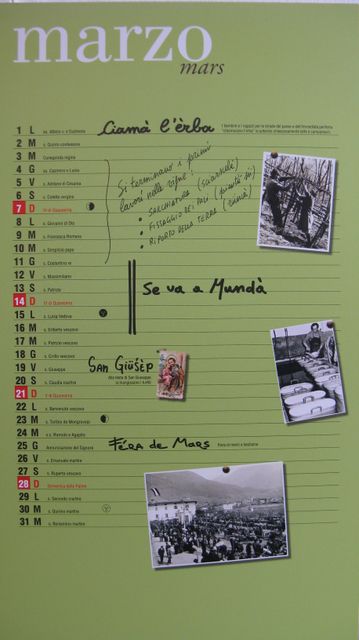 marzo
mars
1 L ss. Albino v. e Eudossia Ciamà l'èrba
2 M s. Quinto confessore
3 M Cunegonda regina
4 G ss. Casimiro e Lucio Si terminano i primi
5 V s. Adriano di Cesarea lavori nelle vigne:
6 S s. Coletta vergine • SARCHIATURA
7 D III di Quaresima • FISSAGGIO DEI PALI
8 L s. Giovanni di Dio • RIPORTO DELLA TERRA
9 M s. Francesca Romana
10 M s. Simplicio papa
11 G s. Costantino
12 V s. Massimiliano
13 S s. Patrizia Se va a Mundà
14 D IV di Quaresima
15 L s. Luisa
16 M s. Eriberto vescovo
17 M s. Patrizio vescovo
18 G s. Cirillo vescovo San Giüśèp
19 V s. Giuseppe
20 S s. Claudia martire
21 D V di Quaresima
22 L s. Benvenuto vescovo
23 M s. Turibio de Mongrovejo
24 M ss. Romolo e Agapito Féra de Mars
25 G Annunciazione del Signore
26 V s. Emanuele martire
27 S s. Ruperto vescovo
28 D Domenica delle Palme
29 L s. Secondo martire
30 M s. Quirino martire
31 M s. Beniamino martire